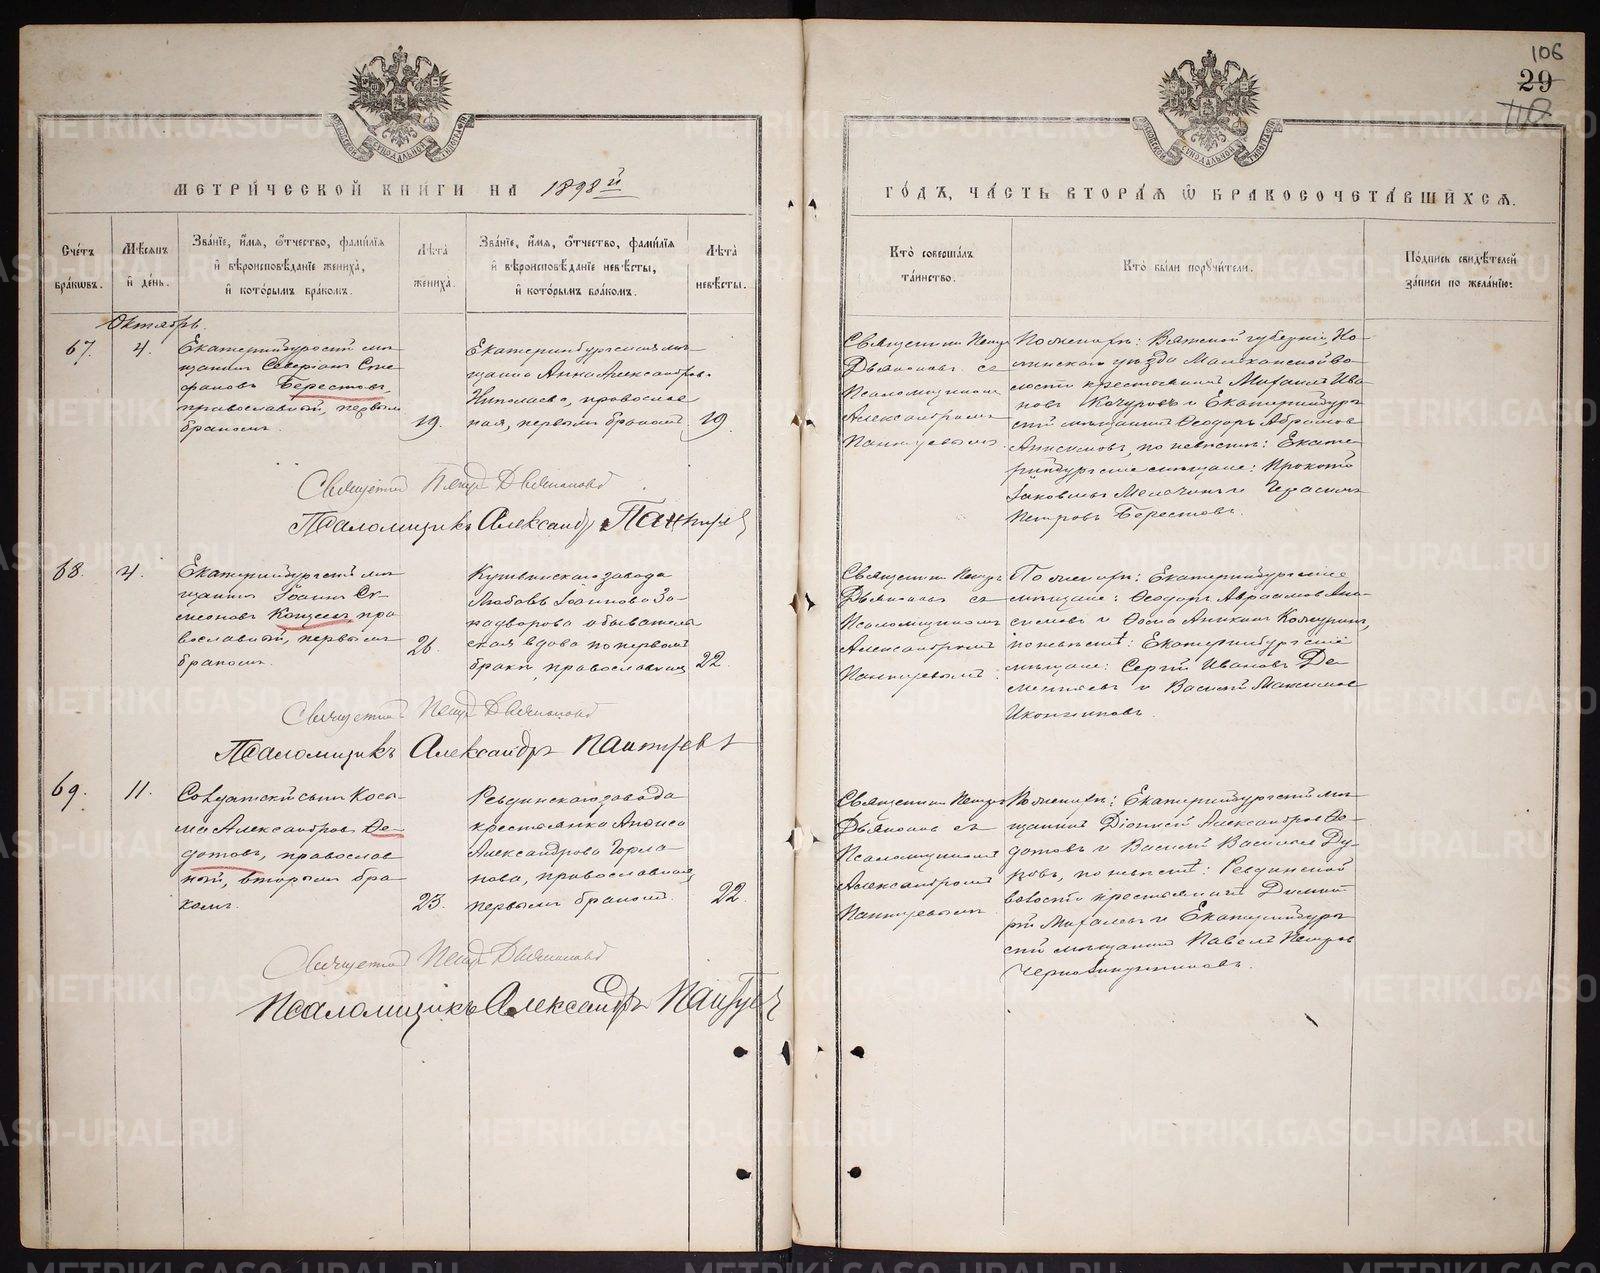 106
29
МЕТРИ́ЧЕСКОЙ КНИ́ГИ НА 1898й
ГО́ДЪ, ЧА́СТЬ ВТОРА́Я Ѿ БРАКОСОЧЕТА́ВШИХСЯ.
Сче́тъ бра́кѡвъ.
Мѣ́сяцъ и҆ де́нь.
Зва́нїе, и҆́мя, ѻ҆́тчество, фами́лїя
и҆ вѣроисповѣ́данїе жениха̀,
и҆ кото́рымъ бра́комъ.
Лѣта̀ жениха̀.
Зва́нїе, и҆́мя, ѻ҆́тчество, фами́лїя
и҆ вѣроисповѣ́данїе невѣ́сты,
и҆ кото́рымъ бра́комъ.
Лѣта̀ невѣ́сты.
Кто̀ соверша́лъ
та́инство.
Кто̀ бы́ли порꙋчи́тели.
По́дпись свидѣ́телей
за́писи по жела́нїю:
Октябрь.
67.
4.
Екатеринбургскій мѣ-
щанинъ Северіанъ Сте-
фановъ Берестовъ,
православный, первымъ
бракомъ.
19.
Екатеринбургская мѣ-
щанка Анна Александров.
Николаева, православ
ная, первымъ бракомъ
19.
Священникъ Петръ
Дьяконовъ съ
Псаломщикомъ
Александромъ
Пантуевымъ.
По женихѣ: Вятской губерніи, Но-
линскаго уѣзда Малкановской во-
лости крестьянинъ Михаилъ Ива-
новъ Кочуровъ и Екатеринбург
скій мѣщанинъ Ѳеодоръ Абрамов
Анисимовъ, по невѣстѣ: Екате-
ринбургскіе мѣщане: Прокопій
Іаковлевъ Мелечкинъ и Герасимъ
Петровъ Берестовъ.
Священникъ Петръ Дьяконовъ
Псаломщикъ Александръ Пантуевъ
68.
4.
Екатеринбургскій мѣ-
щанинъ Іоаннъ Си-
меоновъ Кощеевъ, пра
вославный, первымъ
бракомъ.
26.
Кушвинскаго завода
Любовь Іоаннова За-
надворова обыватель
ская вдова по первомъ
бракѣ, православная
22.
Священникъ Петръ
Дьяконовъ съ
Псаломщикомъ
Александромъ
Пантуевымъ.
По женихѣ: Екатеринбургскіе
мѣщане: Ѳеодоръ Авраамовъ Ани-
симовъ и Ѳома Аникинъ Кожулинъ,
по невѣстѣ: Екатеринбургскіе
мѣщане: Сергій Ивановъ Де-
ментьевъ и Василій Максимов
Иконниковъ.
Священникъ Петръ Дьяконовъ
Псаломщикъ Александръ Пантуевъ
69.
11.
Солдатскій сынъ Кось-
ма Александровъ Ѳе-
дотовъ, православ
ный, вторымъ бра
комъ.
23.
Ревдинскаго завода
крестьянка Анфиса
Александрова Горла-
нова, православная
первымъ бракомъ.
22.
Священникъ Петръ
Дьяконовъ съ
Псаломщикомъ
Александромъ
Пантуевымъ.
По женихѣ: Екатеринбургскій мѣ-
щанинъ Діонисій Александров Ѳе-
дотовъ и Василій Васильев Ду-
ковъ, по невѣстѣ: Ревдинской
волости крестьянинъ Димит
рій Михалевъ и Екатеринбург
скій мѣщанинъ Павелъ Петров
Священникъ Петръ Дьяконовъ
Псаломщикъ Александръ Пантуевъ
METRIKI.GASO-URAL.RU